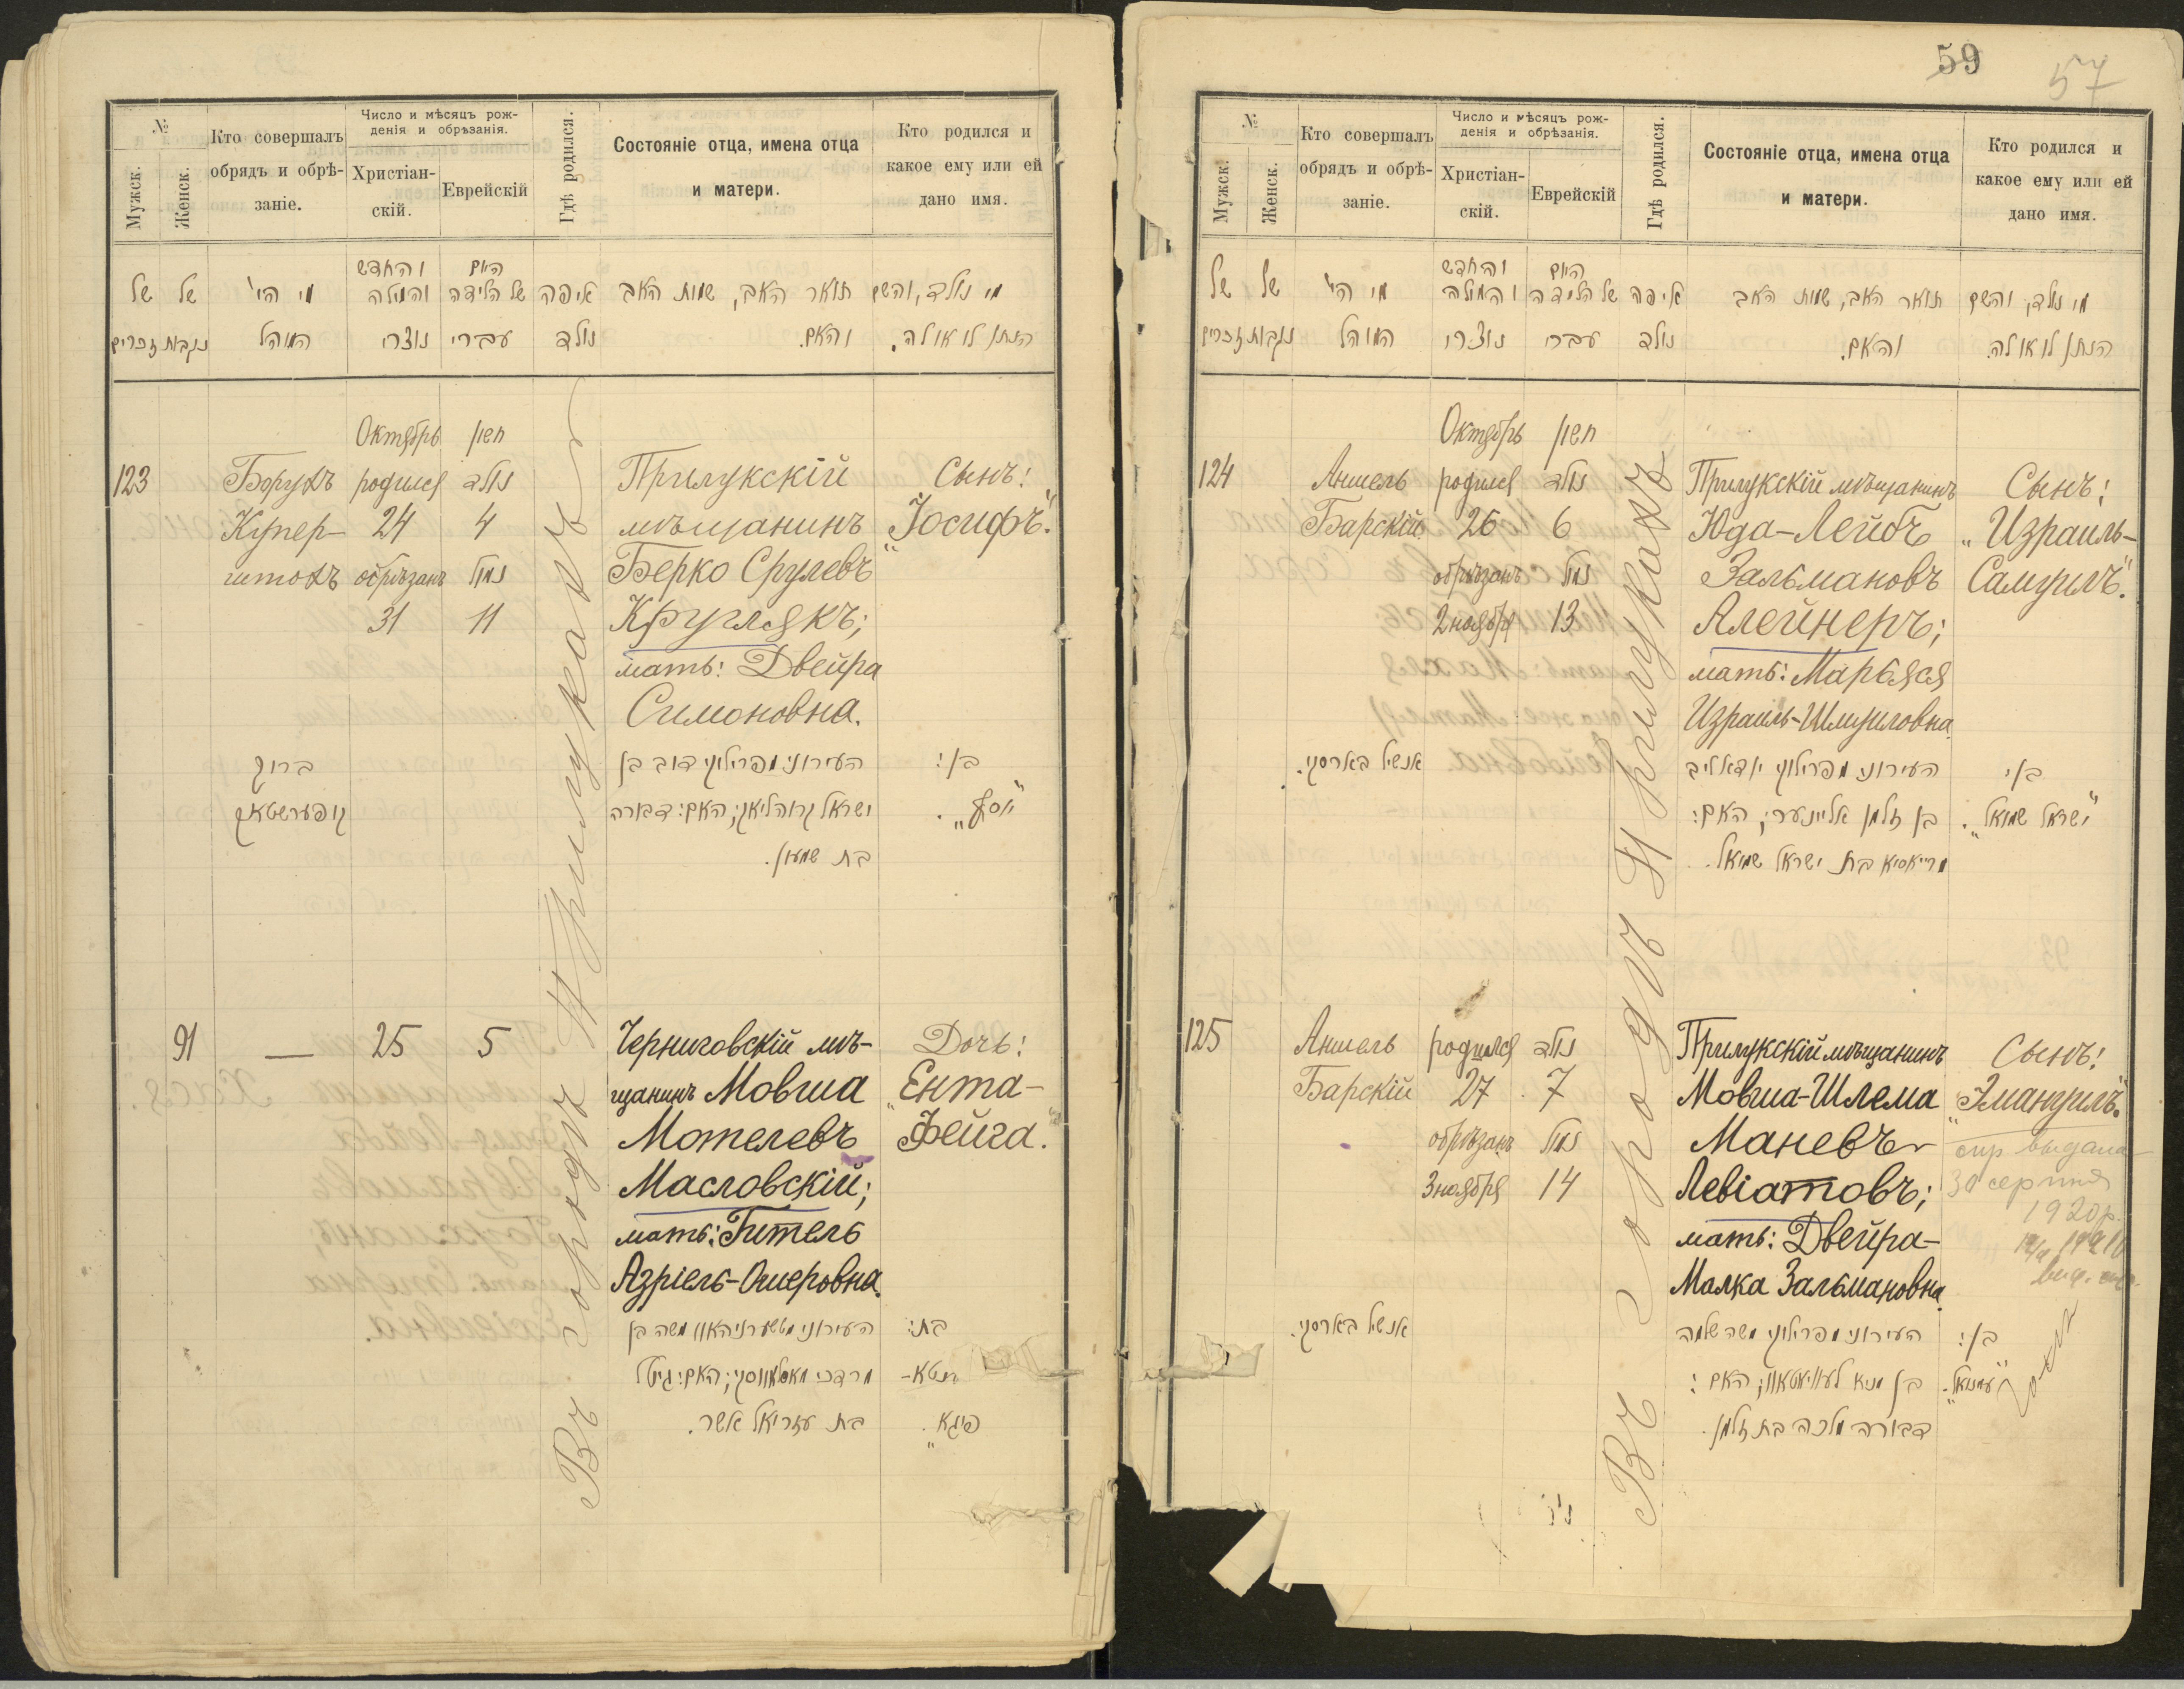 №
Мужск.
Женск.
Кто совершалъ
обрядъ и обрѣ-
заніе.
Число и мѣсяцъ рож-
денія и обрѣзанія.
Христіан-
скій.
Еврейскій
Гдѣ родился.
Состояніе отца, имена отца
и матери.
Кто родился и
какое ему или ей
дано имя.
מי נולד, והשם
הנתן לו או לה.
תואר האב, שמות האב
והאם.
איפה
נולד
היום
של הלידה
עברי
והחדש
והמילה
נוצרי
מי הי'
המוהל
של
נקבות
של
זכרים
Октябрь
חשון
123
Борухъ
Купер-
штохъ
родился
24
обрѣзанъ
31
נולד
4
נמול
11
Прилукскій
мѣщанинъ
Берко Срулевъ
Круглякъ;
мать: Двейра
Симоновна.
Сынъ:
„Іосифъ“.
ברוך
קופערשטאק
העירוני מפרילוקי דוב בן
ישראל קרוהליאק; האם: דבורה
בת שמעון.
בן:
"יוסף".
91
—
25
5
Черниговскій мѣ-
щанинъ Мовша
Мотелевъ
Масловскій;
мать: Гитель
Азріель-Ошеровна.
Дочь:
„Ента-
Фейга“.
העירוני מטשערניהאוו משה בן
מרדכי מאסלאווסקי; האם: גיטל
בת עזריאל אשר.
בת:
יענטא-
פייגא".
Въ городѣ Прилукахъ
59
57
№
Мужск.
Женск.
Кто совершалъ
обрядъ и обрѣ-
заніе.
Число и мѣсяцъ рож-
денія и обрѣзанія.
Христіан-
скій.
Еврейскій
Гдѣ родился.
Состояніе отца, имена отца
и матери.
Кто родился и
какое ему или ей
дано имя.
מי נולד, והשם
הנתן לו או לה.
תואר האב, שמות האב
והאם.
איפה
נולד
היום
של הלידה
עברי
והחדש
והמילה
נוצרי
מי הי'
המוהל
של
נקבות
של
זכרים
Октябрь
חשון
124
Аншель
Барскій
родился
26
обрѣзанъ
2 ноября
נולד
6
נמול
13
Прилукскій мѣщанинъ
Юда-Лейбъ
Зальмановъ
Алейнеръ;
мать: Марьяся
Израиль-Шмуиловна.
Сынъ:
„Израиль-
Самуилъ“.
אנשיל בארסקי.
העירוני מפרילוקי יודא ליב
בן זלמן אליינער; האם:
מריאסיא בת ישראל שמואל.
בן:
"ישראל שמואל".
125
Аншель
Барскій
родился
27
обрѣзанъ
3 ноября
נולד
7
נמול
14
Прилукскій мѣщанинъ
Мовша-Шлема
Маневъ
Левіатовъ;
мать: Двейра-
Малка Зальмановна.
Сынъ:
„Эмануилъ“.
выдана
30 серпня
1920р.
אנשיל בארסקי.
העירוני מפרילוקי משה שלמה
בן מנא לעוויאטאוו; האם:
דבורה מלכה בת זלמן.
בן:
"עמנואל".
Въ городѣ Прилукахъ